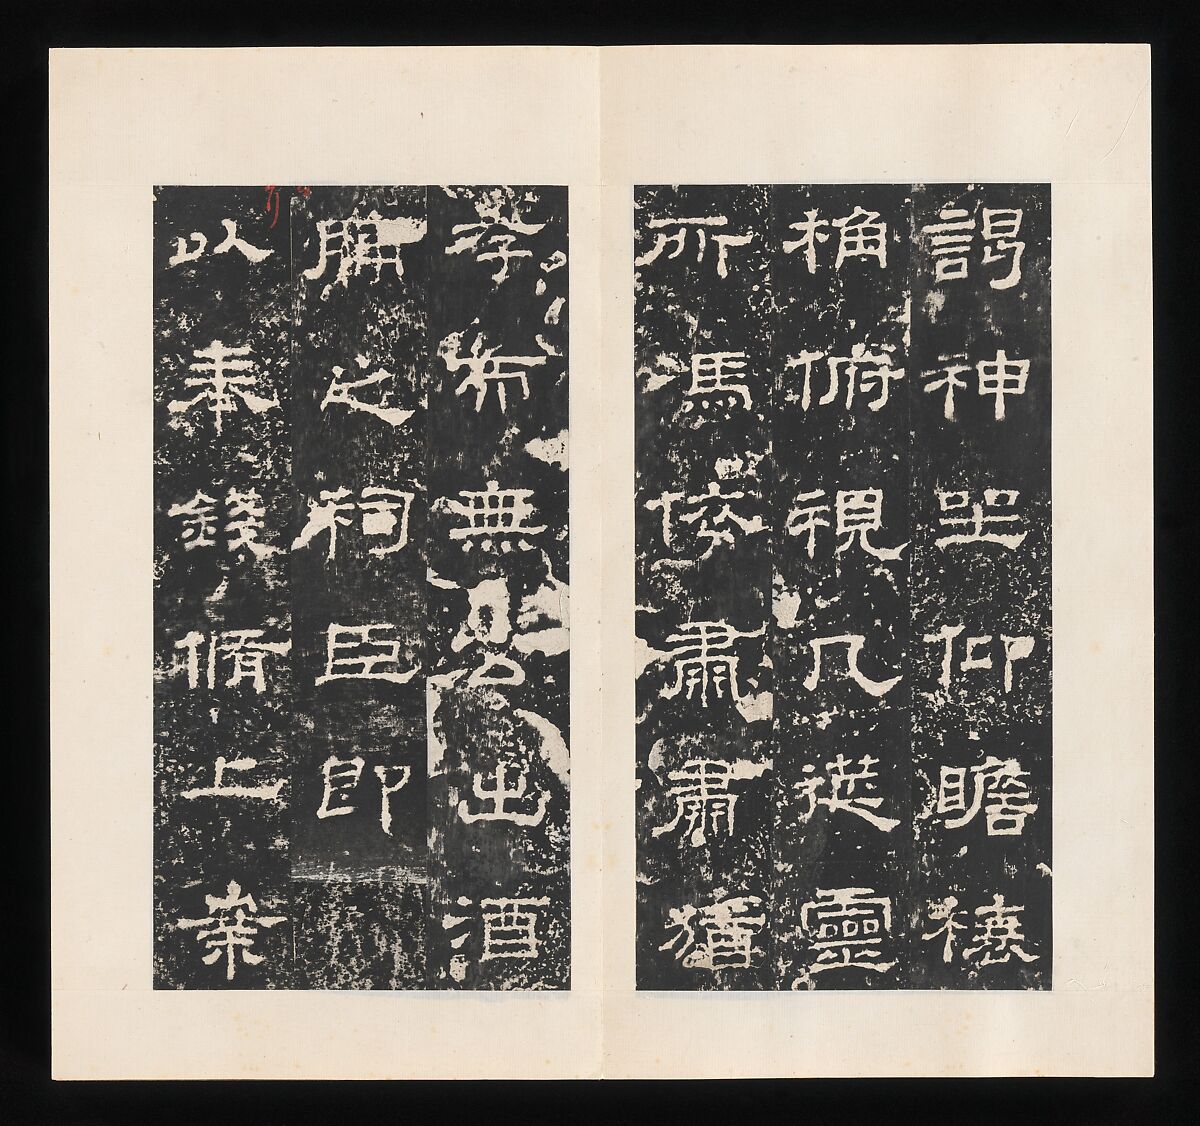 謁神坐仰瞻榱
桷俯視几筵靈
所馮依肅肅猶
存而無公出酒
脯之祠臣即
以奉錢脩上案